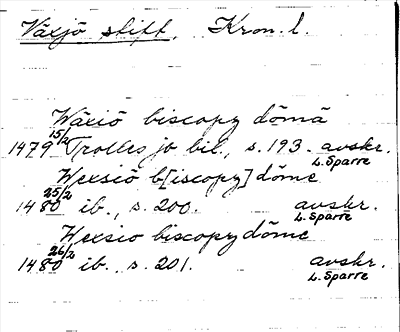 Växjö stift. Kron. l.
Wäxiö biscopy dömä
1479 15/2 Trolles jo bil., s. 193. avskr.
L. Sparre
Wexsiö b[iscopy] döme
1480 25/2 ib., s. 200. avskr.
L. Sparre
Wexsio biscopy döme
1480 26/2 ib. s. 201. avskr.
L. Sparre